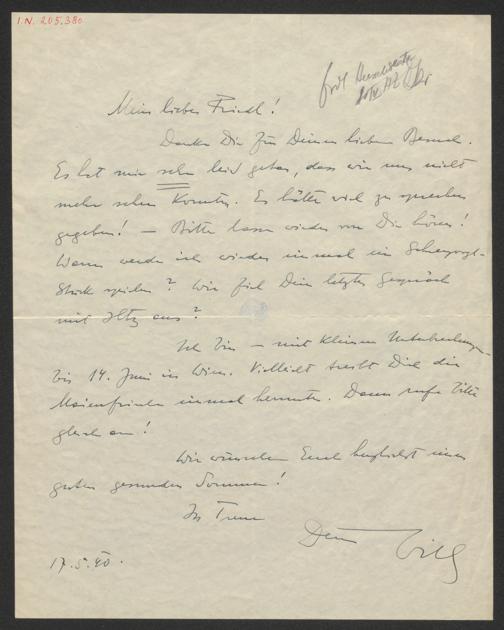 I.N. 205.380
Mein lieber Friedl!
Danke Dir für Deinen lieben Besuch.
Es hat mir sehr leid getan, dass wir uns nicht
mehr sehen konnten. Es hätte viel zu sprechen
gegeben! — Bitte lasse wieder von Dir hören!
Wann werde ich wieder einmal ein
Stück spielen? Wie fiel Dein letztes Gespräch
mit aus?
Ich bin — mit kleinen Unterbrechungen —
bis 14. Juni in Wien. Vielleicht treibt Dich die
einmal herunter. Dann rufe bitte
gleich an!
Wir wünschen Euch herzlichst einen
guten gesunden Sommer!
In Treue
Dein
17.5.40.